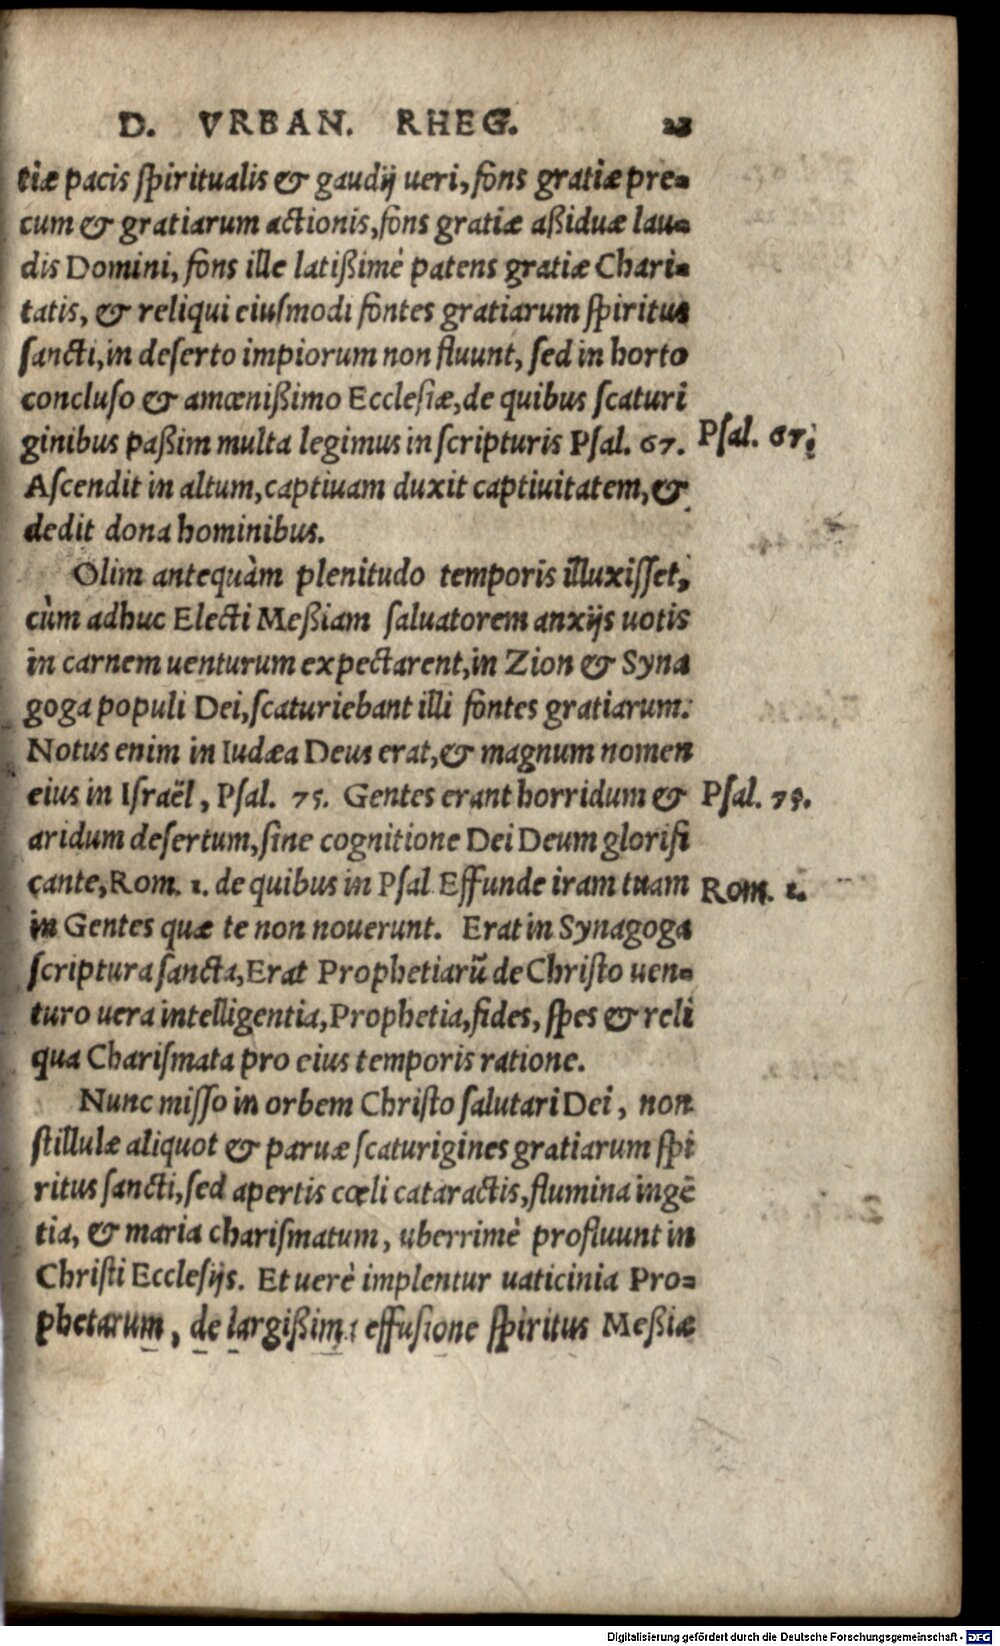 D. VRBAN. RHEG. 23
tiæ pacis spiritualis & gaudij ueri, fons gratiæ pre=
cum & gratiarum actionis, fons gratiæ aßiduæ lau=
dis Domini, fons ille latißimè patens gratiæ Chari=
tatis, & reliqui eiusmodi fontes gratiarum spiritus
sancti, in deserto impiorum non fluunt, sed in horto
concluso & amœnißimo Ecclesiæ, de quibus scaturi
ginibus paßim multa legimus in scripturis Psal. 67.
Psal. 67.
Ascendit in altum, captiuam duxit captiuitatem, &
dedit dona hominibus.
Olim antequàm plenitudo temporis illuxisset,
cùm adhuc Electi Meßiam saluatorem anxijs uotis
in carnem uenturum expectarent, in Zion & Syna
goga populi Dei, scaturiebant illi fontes gratiarum.
Notus enim in Iudæa Deus erat, & magnum nomen
eius in Israël, Psal. 75. Gentes erant horridum &
Psal. 75.
aridum desertum, sine cognitione Dei Deum glorifi
cante, Rom. 1. de quibus in Psal Effunde iram tuam
Rom. 1.
in Gentes quæ te non nouerunt. Erat in Synagoga
scriptura sancta, Erat Prophetiarũ de Christo uen=
turo uera intelligentia, Prophetia, fides, spes & reli
qua Charismata pro eius temporis ratione.
Nunc misso in orbem Christo salutari Dei, non
stillulæ aliquot & paruæ scaturigines gratiarum spi
ritus sancti, sed apertis cœli cataractis, flumina ingē
tia, & maria charismatum, uberrimè profluunt in
Christi Ecclesijs. Et uerè implentur uaticinia Pro=
phetarum, de largißima effusione spiritus Meßiæ
Digitalisierung gefördert durch die Deutsche Forschungsgemeinschaft - DFG